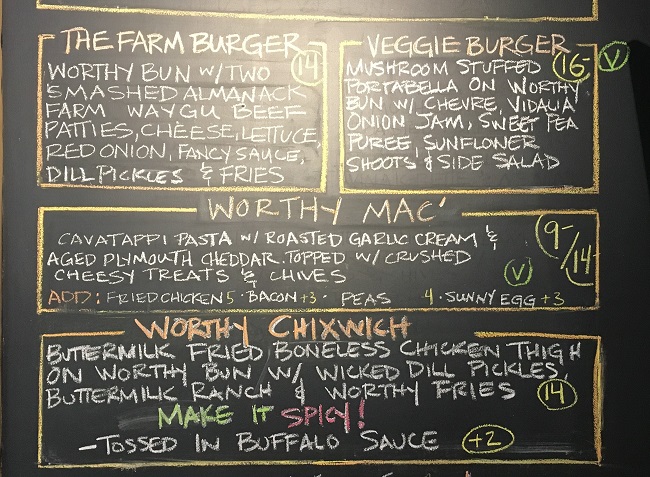 THE FARM BURGER
WORTHY BUN W/ TWO 14
SMASHED ALMANACK
FARM WAYGU BEEF
PATTIES, CHEESE, LETTUCE,
RED ONION, FANCY SAUCE,
DILL PICKLES & FRIES
VEGGIE BURGER V
MUSHROOM STUFFED 16-
PORTABELLA ON WORTHY
BUN W/ CHEVRE, VIDALIA
ONION JAM, SWEET PEA
PUREE, SUNFLOWER
SHOOTS & SIDE SALAD
WORTHY MAC'
CAVATAPPI PASTA W/ ROASTED GARLIC CREAM & 9-/14-
AGED PLYMOUTH CHEDDAR. TOPPED W/ CRUSHED
CHEESY TREATS & CHIVES V
ADD: FRIED CHICKEN 5 · BACON +3 · PEAS 4 · SUNNY EGG +3
WORTHY CHIXWICH
BUTTERMILK FRIED BONELESS CHICKEN THIGH
ON WORTHY BUN W/ WICKED DILL PICKLES,
BUTTERMILK RANCH & WORTHY FRIES 14
MAKE IT SPICY!
-TOSSED IN BUFFALO SAUCE +2